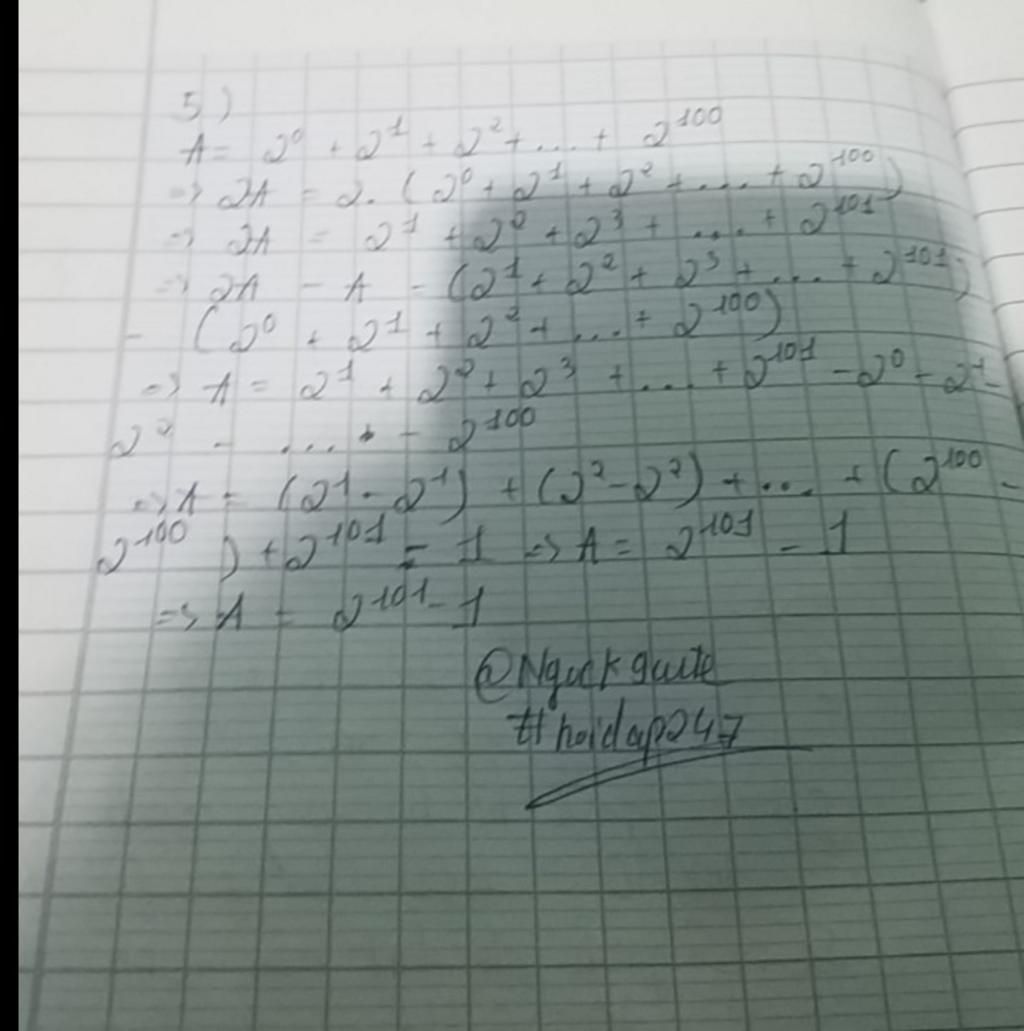 5)
A = 2⁰ + 2¹ + 2² + ... + 2¹⁰⁰
=> 2A = 2. (2⁰ + 2¹ + 2² + ... + 2¹⁰⁰)
=> 2A = 2¹ + 2² + 2³ + .... + 2¹⁰¹
=> 2A - A = (2¹ + 2² + 2³ + ... + 2¹⁰¹)
- (2⁰ + 2¹ + 2² + ... + 2¹⁰⁰)
=> A = 2¹ + 2² + 2³ + ... + 2¹⁰¹ - 2⁰ - 2¹ -
2² - .... - 2¹⁰⁰
=> A = (2¹ - 2¹) + (2² - 2²) + ... + (2¹⁰⁰ -
2¹⁰⁰) + 2¹⁰¹ - 1 => A = 2¹⁰¹ - 1
=> A = 2¹⁰¹ - 1
#hoidap247